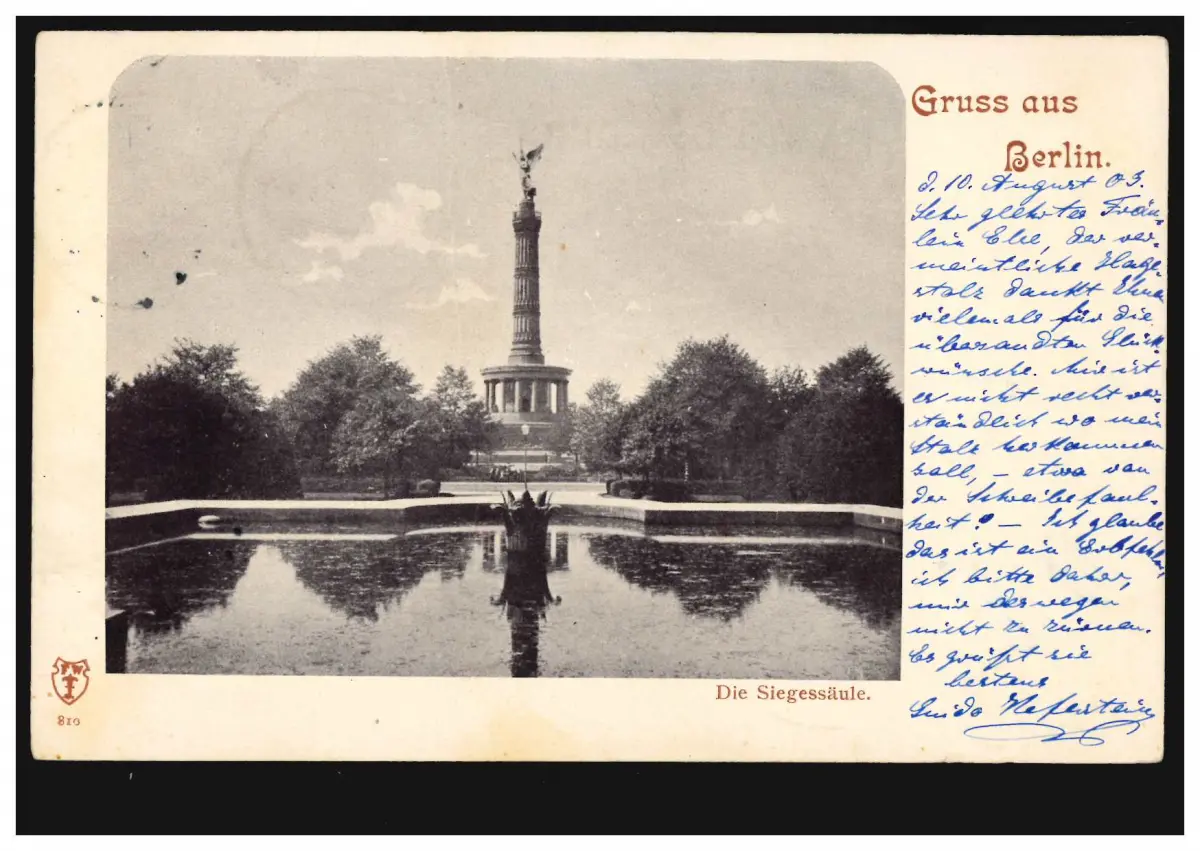 Gruss aus
Berlin.
d. 10. August 03.
Sehr geehrtes Fräu-
lein Else, der ver-
meintliche Hage-
stolz dankt Ihnen
vielemals für die
übersandten Glück-
wünsche. Mir ist
es nicht recht ver-
ständlich wo mein
Stolz herkommen
soll, – etwa von
der Schreibefaul-
heit? – Ich glaube
das ist ein Erbfehler,
ich bitte daher,
mir deswegen
nicht zu zürnen.
Es grüßt sie
bestens
Guido
Die Siegessäule.
F W
810